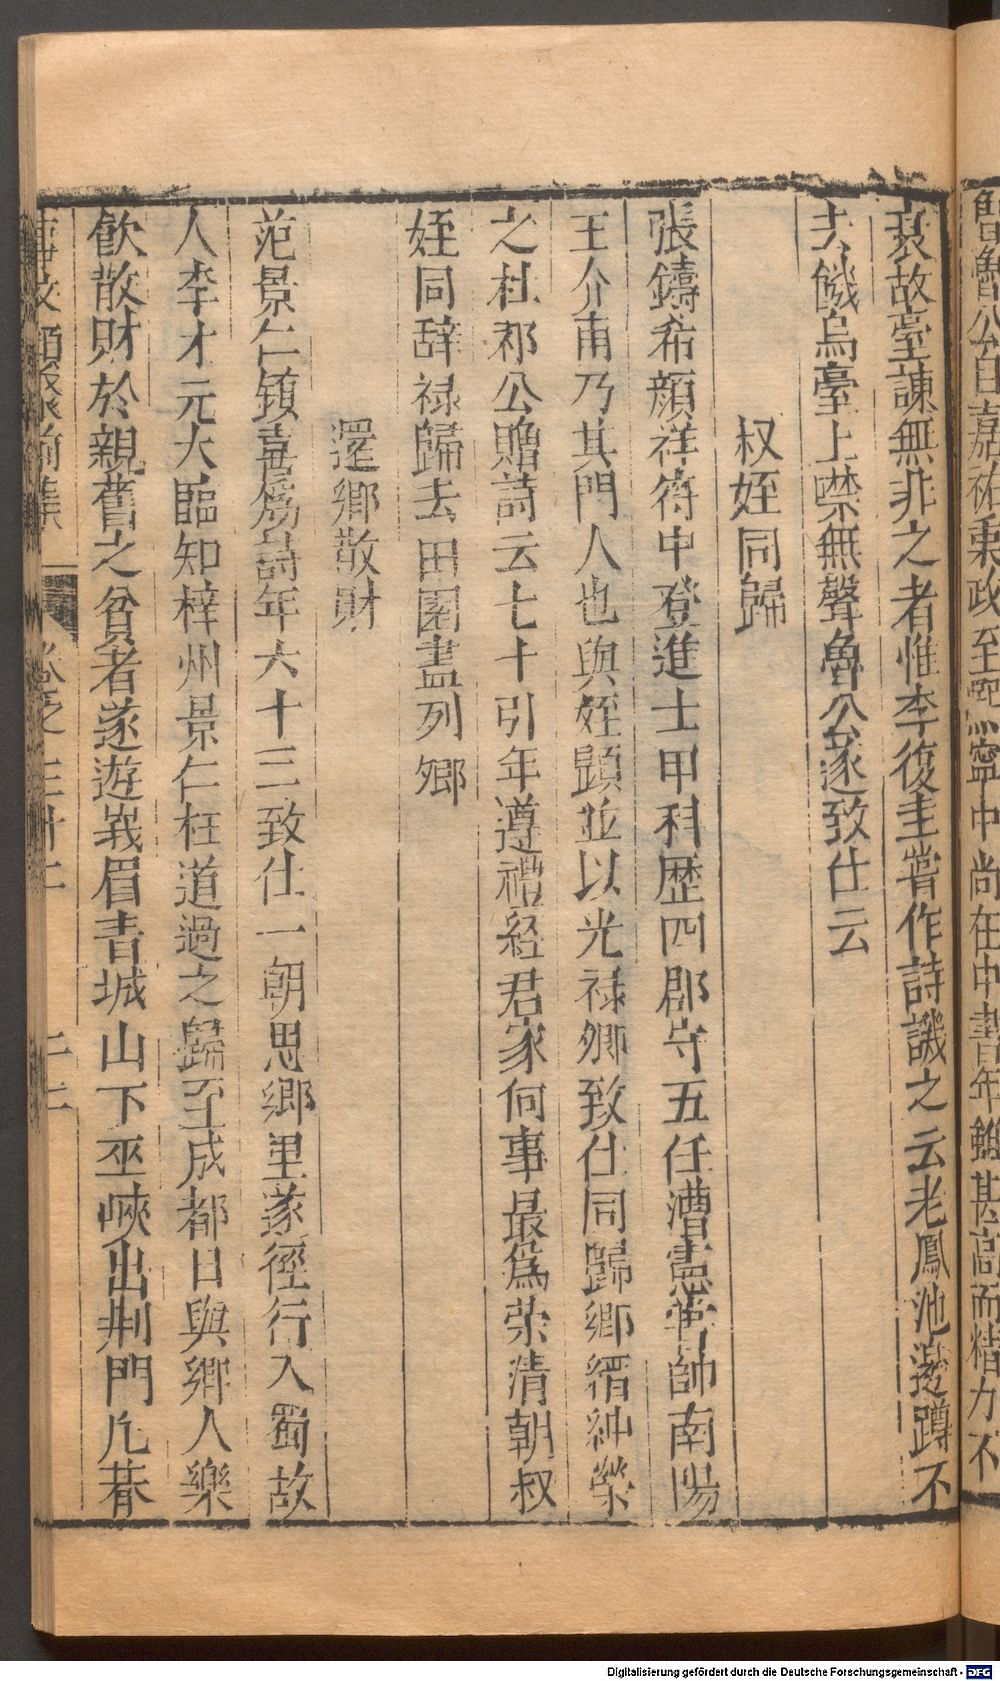 曾魯公自嘉祐秉政至熙寧中尚在中書年雖甚高而精力不
衰故臺諫無非之者惟李復圭嘗作詩譏之云老鳳池邊蹲不
去饑烏臺上噤無聲魯公遂致仕云
叔姪同歸
張鑄希顔祥符中登進士甲科歷四郡守五任漕憲卒帥南陽
王介甫乃其門人也與姪顗並以光祿卿致仕同歸鄉縉紳榮
之杜祁公贈詩云七十引年遵禮経君家何事最為荣清朝叔
姪同辞禄歸去田園盡列卿
還鄉散財
范景仁鎮喜爲詩年六十三致仕一朝思鄉里遂徑行入蜀故
人李才元大臨知梓州景仁枉道過之歸至成都日與鄉人樂
飲散財於親舊之貧者遂遊峩眉青城山下巫峽出荆門凡朞
事文類聚前集 卷之三十二 二十二
Digitalisierung gefördert durch die Deutsche Forschungsgemeinschaft - DFG